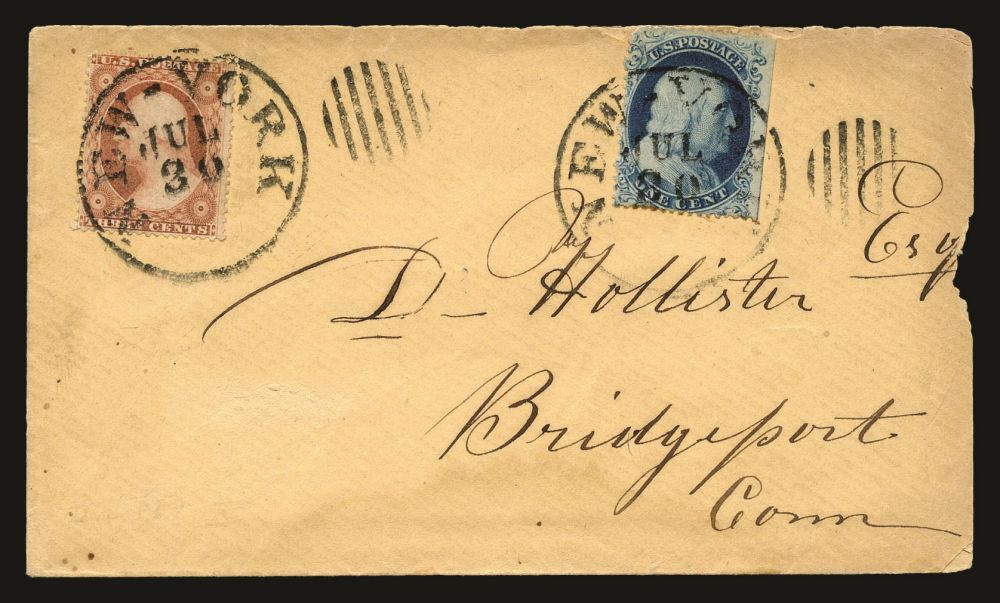 U.S. POSTAGE
THREE CENTS
NEW-YORK
JUL
30
U.S. POSTAGE
ONE CENT
NEW-YO
JUL
30
D- Hollister Esq
Bridgeport
Conn